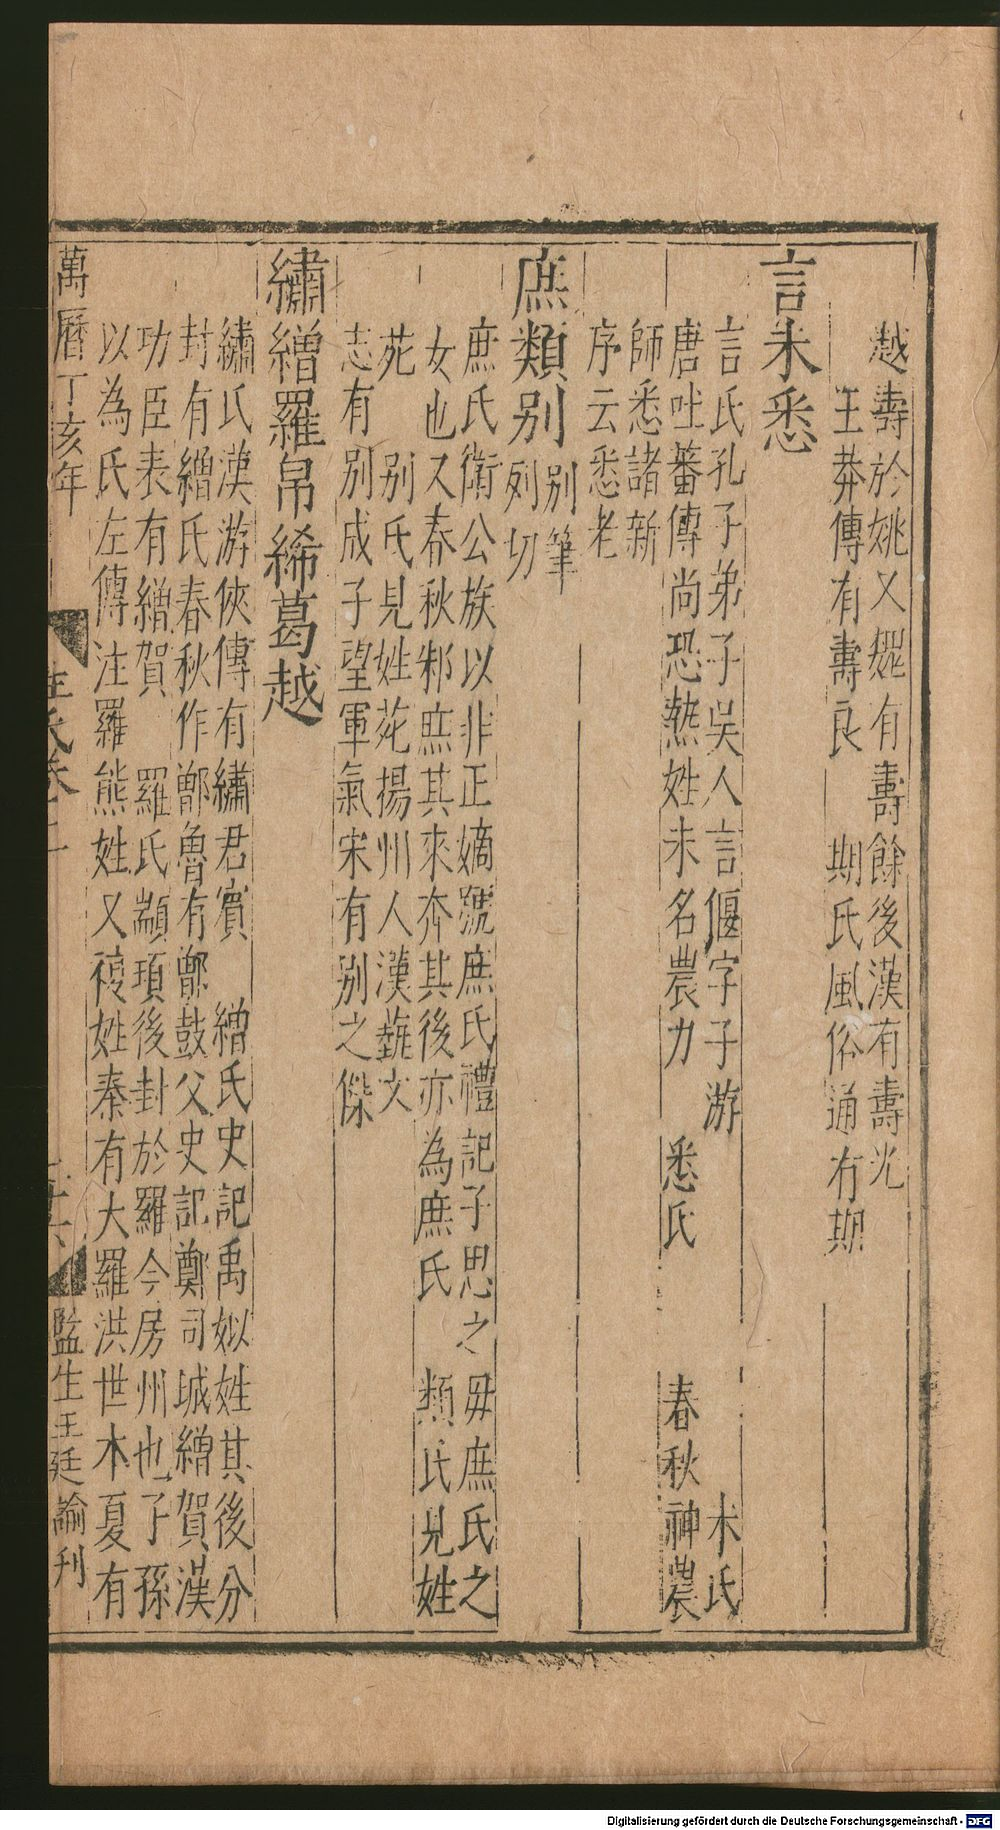 越壽於姚又㜰有壽餘後漢有壽光
王莽傳有壽良　期氏風俗通有期
言未悉
言氏孔子弟子吳人言偃字子游　未氏
唐吐蕃傳尚恐熱姓未名農力　悉氏　春秋神農
師悉諸新
序云悉老
庶類别
别筆
列切
庶氏衛公族以非正嫡號庶氏禮記子思之毋庶氏之
女也又春秋邾庶其來奔其後亦為庶氏　類氏見姓
苑　别氏見姓苑揚州人漢蓺文
志有别成子望軍氣宋有别之傑
繡繒羅帛絺葛越
繡氏漢游俠傳有繡君賓　繒氏史記禹姒姓其後分
封有繒氏春秋作鄫魯有鄫鼓父史記鄭司城繒賀漢
功臣表有繒賀　羅氏顓頊後封於羅今房州也子孫
以為氏左傳注羅熊姓又複姓秦有大羅洪世本夏有
萬曆丁亥年
姓氏卷
監生王廷諭刋
Digitalisierung gefördert durch die Deutsche Forschungsgemeinschaft - DFG